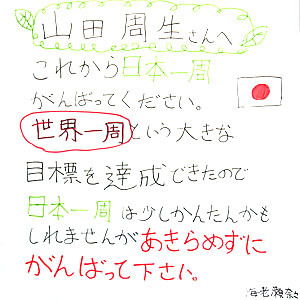 山田周生さんへ
これから日本一周
がんばってください。
世界一周という大きな
目標を達成できたので
日本一周は少しかんたんかも
しれませんがあきらめずに
がんばって下さい。
海老瀬奈